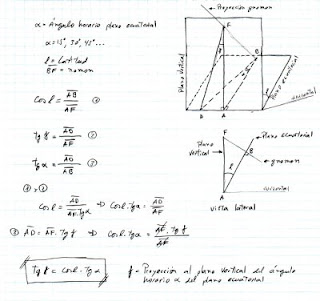 α = Ángulo horario plano ecuatorial
α = 15°, 30°, 45° ...
ℓ = Latitud
BF = nomon
Cos ℓ = AB / AF ①
Tg γ = AD / AF ②
Tg α = AD / AB ③
Cos ℓ = AD / AF · Tg α ⇒ Cos ℓ · Tg α = AD / AF
② AD = AF · Tg γ ⇒ Cos ℓ · Tg α = AF · Tg γ / AF
Tg γ = Cos ℓ · Tg α
γ - Proyección al plano vertical del ángulo
horario α del plano ecuatorial
Proyección gnomon
Plano vertical
F
B
D
A
Plano ecuatorial
horizontal
F
Plano ecuatorial
plano
vertical
B
gnomon
ℓ
A
horizontal
Vista lateral